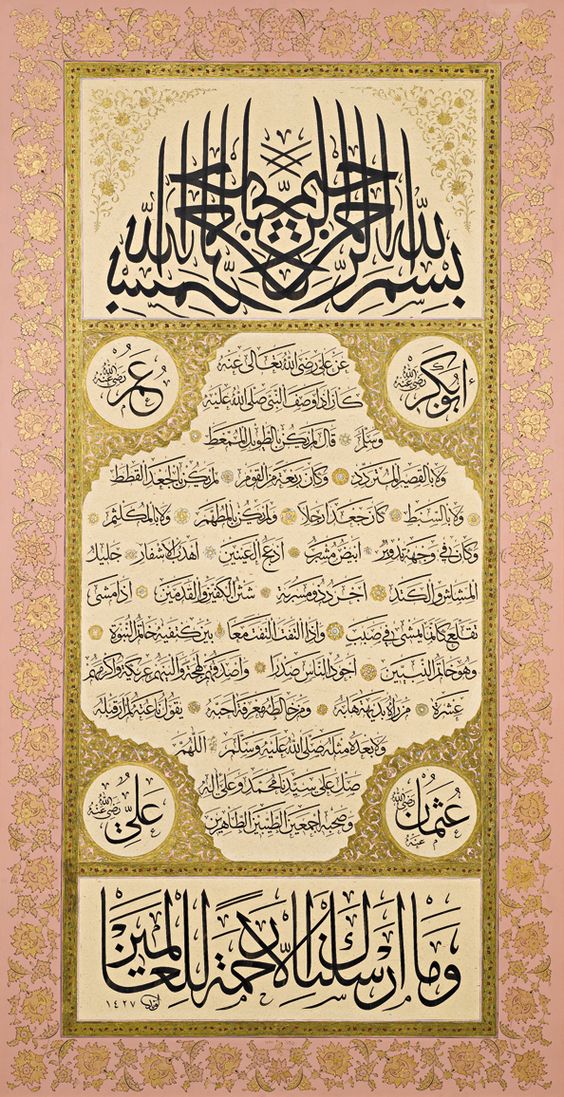 بسم الله الرحمن الرحيم
أبو بكر رضي الله عنه
عمر رضي الله عنه
عن علي رضي الله تعالى عنه
كان إذا وصف النبي صلى الله عليه
وسلم قال لم يكن بالطويل الممغط
ولا بالقصير المتردد وكان ربعة من القوم لم يكن بالجعد القطط
ولا بالسبط كان جعدا رجلا ولم يكن بالمطهم ولا بالمكلثم
وكان في وجهه تدوير أبيض مشرب أدعج العينين أهدب الأشفار جليل
المشاش والكتد أجرد ذو مسربة شثن الكفين والقدمين إذا مشى
تقلع كأنما يمشي في صبب وإذا التفت التفت معا بين كتفيه خاتم النبوة
وهو خاتم النبيين أجود الناس صدرا وأصدقهم لهجة وألينهم عريكة وأكرمهم
عشرة من رآه بديهة هابه ومن خالطه معرفة أحبه يقول ناعته لم أر قبله
ولا بعده مثله صلى الله عليه وسلم اللهم
صل على سيدنا محمد وعلى آله
وصحبه أجمعين الطيبين الطاهرين
عثمان رضي الله عنه
علي رضي الله عنه
وما أرسلناك إلا رحمة للعالمين
١٤٢٧